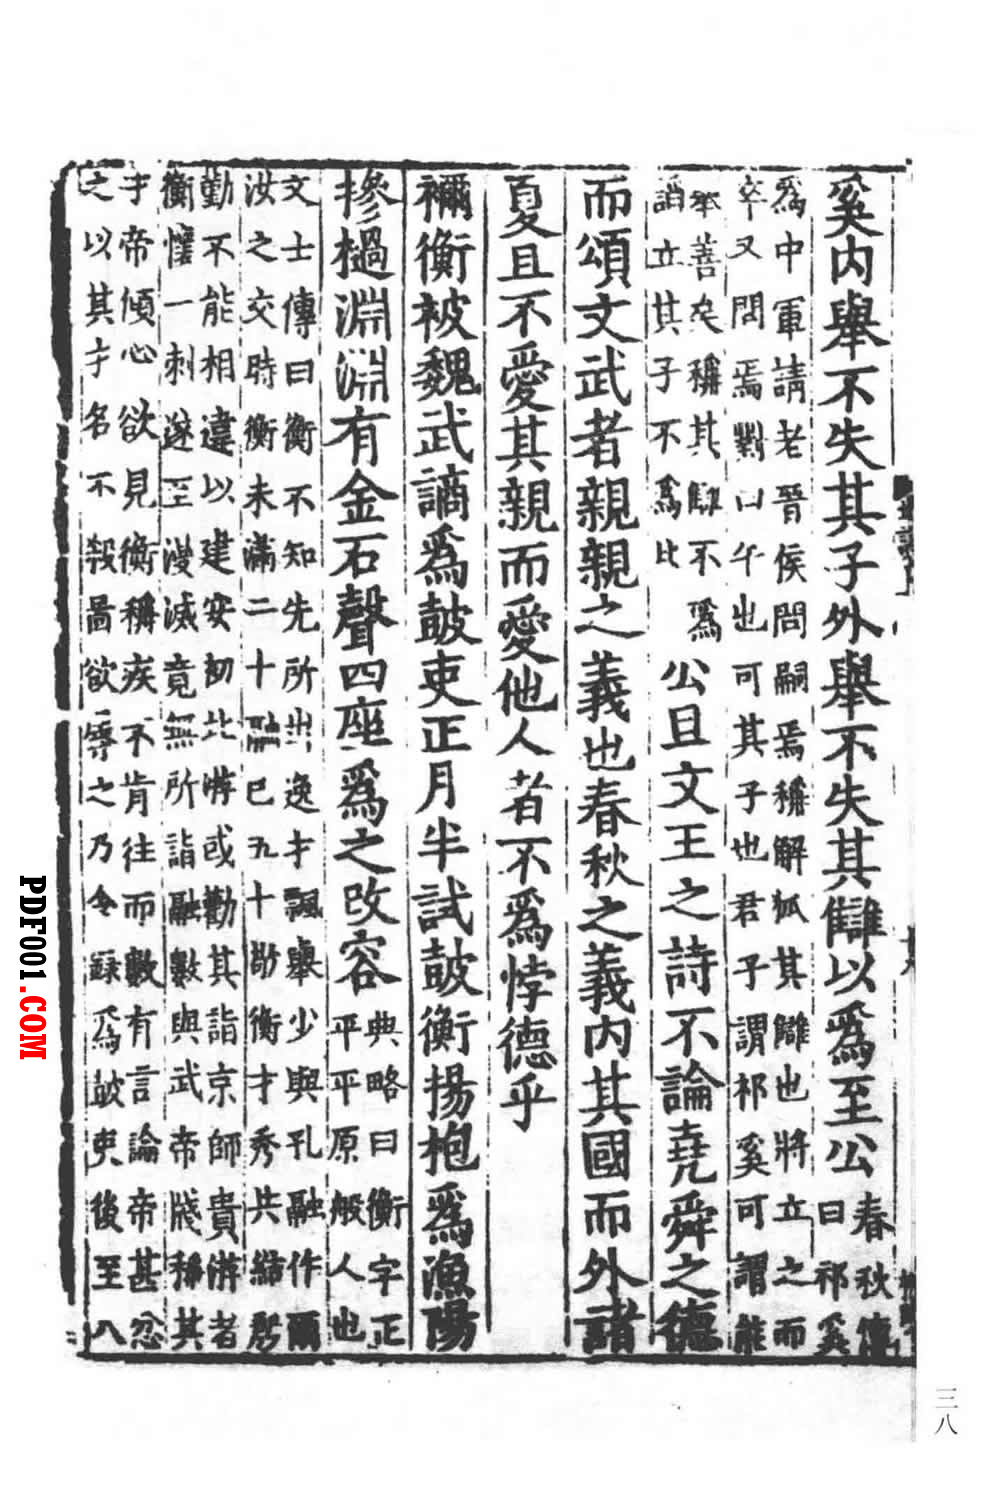 奚内舉不失其子外舉不失其讎以為至公春秋傳
曰祁奚
為中軍請老晉侯問嗣焉稱解狐其讎也將立之而
卒又問焉對曰午也可其子也君子謂祁奚可謂能
舉善矣稱其讎不為
諂立其子不為比
公旦文王之詩不論堯舜之德
而頌文武者親親之義也春秋之義内其國而外諸
夏且不愛其親而愛他人者不為悖德乎
禰衡被魏武謫為鼓吏正月半試鼓衡揚枹為漁陽
摻檛淵淵有金石聲四座為之改容典略曰衡字正
平平原般人也
文士傳曰衡不知先所出逸才飄舉少與孔融作爾
汝之交時衡未滿二十融已五十敬衡才秀共結殷
勤不能相違以建安初北游或勸其詣京師貴游者
衡懷一刺遂至漫滅竟無所詣融數與武帝牋稱其
才帝傾心欲見衡稱疾不肯往而數有言論帝甚忿
之以其才名不殺圖欲辱之乃令錄為鼓吏後至八
三八
PDF001.COM